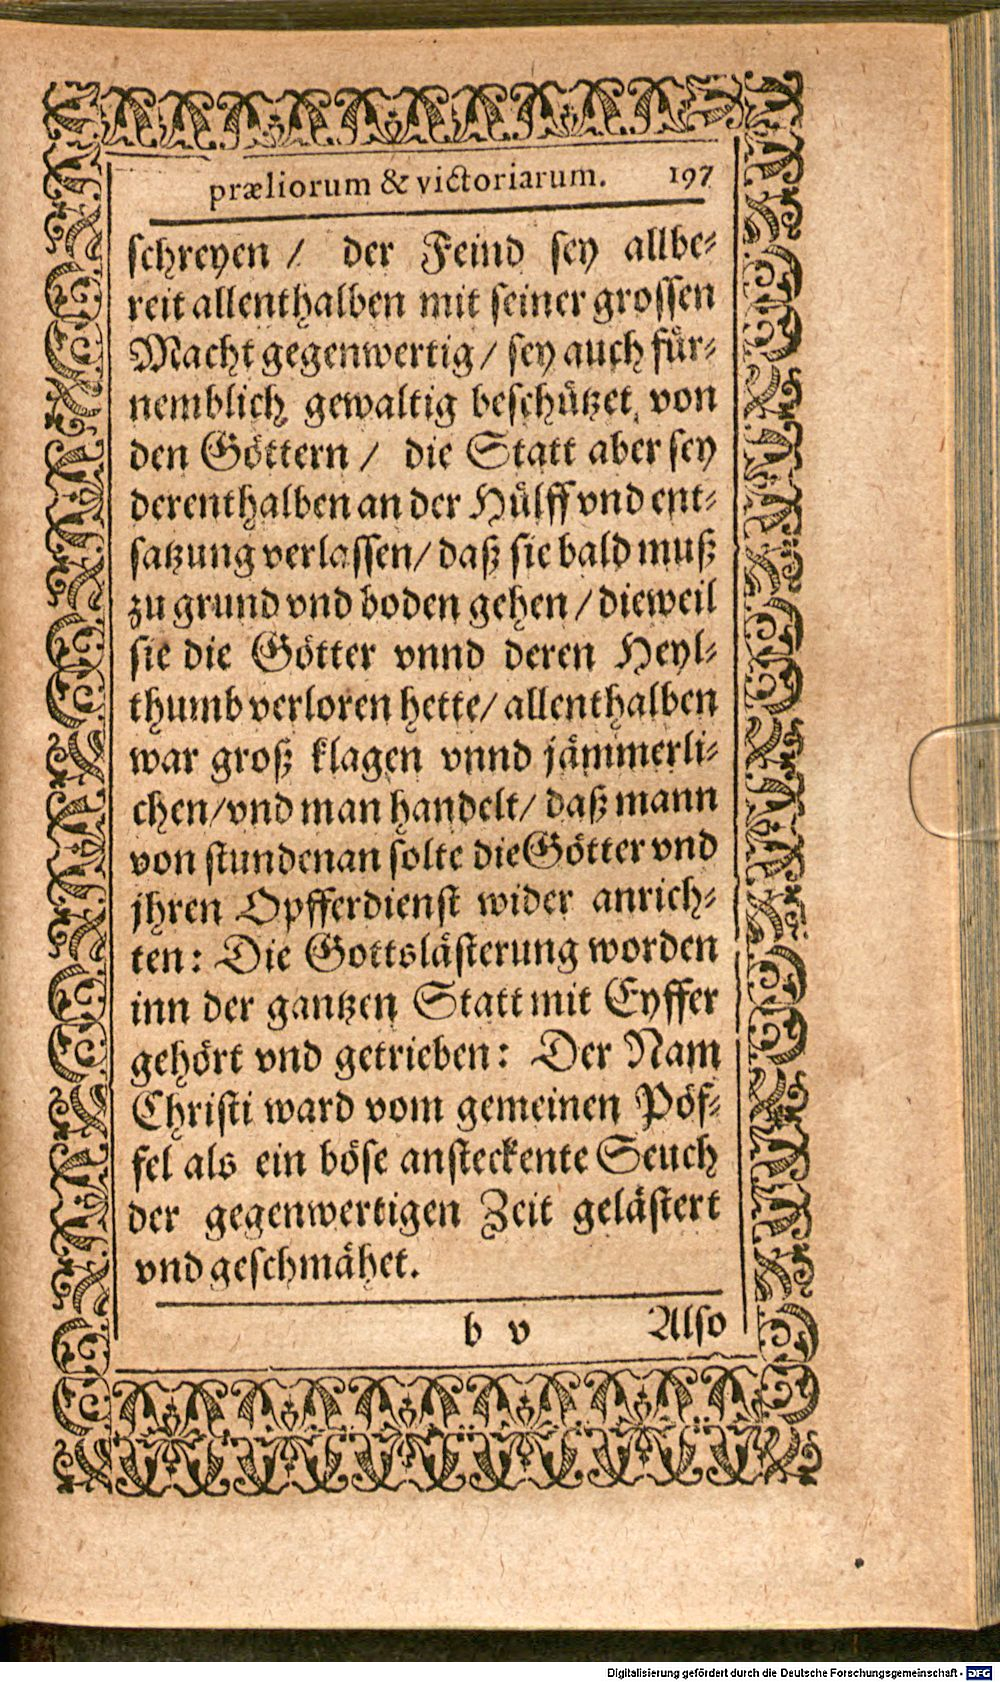 præliorum & victoriarum. 197
schreyen / der Feind sey allbe-
reit allenthalben mit seiner grossen
Macht gegenwertig / sey auch für-
nemblich gewaltig beschützet von
den Göttern / die Statt aber sey
derenthalben an der Hülff vnd ent-
satzung verlassen / daß sie bald muß
zu grund vnd boden gehen / dieweil
sie die Götter vnnd deren Heyl-
thumb verloren hette / allenthalben
war groß klagen vnnd jämmerli-
chen / vnd man handelt / daß mann
von stundenan solte die Götter vnd
jhren Opfferdienst wider anrich-
ten: Die Gottslästerung worden
inn der gantzen Statt mit Eyffer
gehört vnd getrieben: Der Nam
Christi ward vom gemeinen Pöf-
fel als ein böse ansteckente Seuch
der gegenwertigen Zeit gelästert
vnd geschmähet.
b v Also
Digitalisierung gefördert durch die Deutsche Forschungsgemeinschaft - DFG